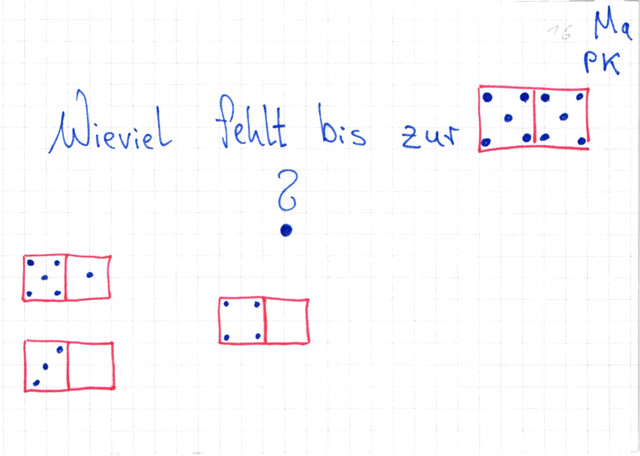 16 Ma
PK
Wieviel fehlt bis zur
?